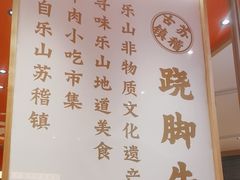 苏稽
古镇
跷脚牛
乐山非物质文化遗产
寻味乐山地道美食
牛肉小吃市集
自乐山苏稽镇